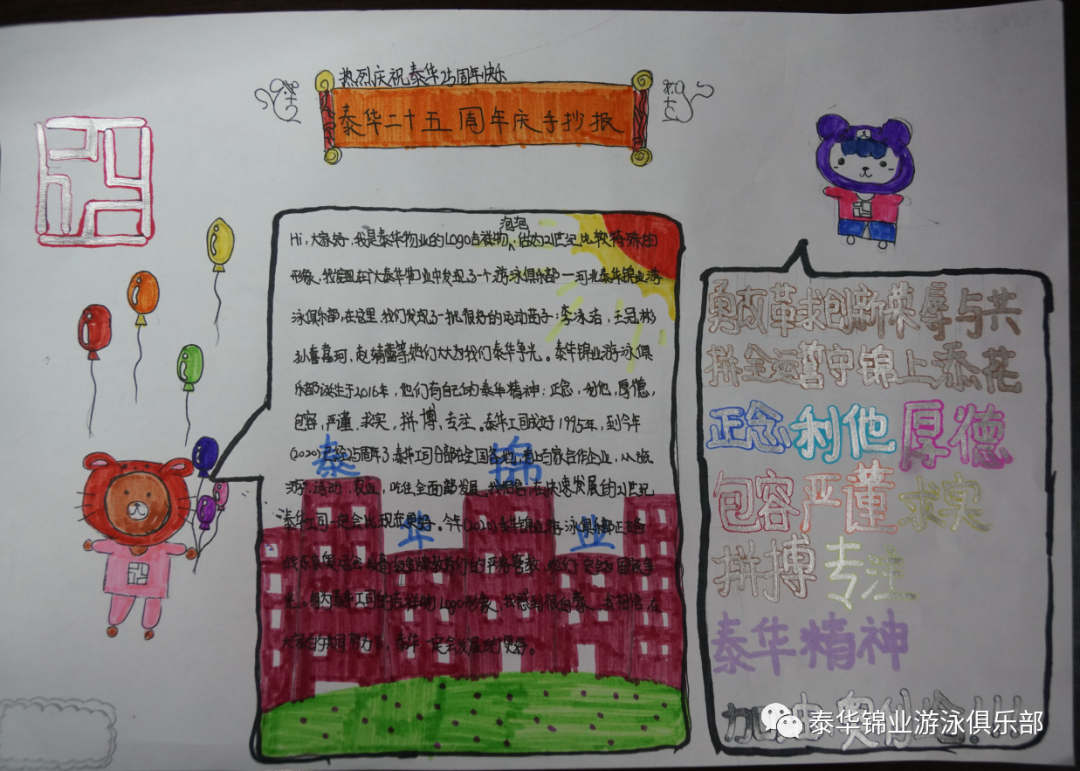 热烈庆祝泰华25周年快乐
泰华二十五周年庆手抄报
泡泡
Hi,大家好,我是泰华物业的Logo吉祥物,估为21世纪比较特殊的
形象,我在大泰华物业中发现了一个游泳俱乐部—河北泰华锦业游
泳俱乐部,在这里我们发现了一批很好的运动苗子:李冰洁,王冠彬
赵靖等她们大大为我们泰华争光。泰华锦业游泳俱
乐部诞生于2016年,他们有自己的泰华精神:正念,利他,厚德,
包容,严谨,求实,拼博,专注。泰华公司成立于1995年,到今年
(2020)已经25周年了泰华公司
运动,农业,全面发展,我相信在快速发展的21世纪
泰华公司一定会比现在更好。今年(2020)泰华锦业游泳俱乐部正
的严格管教,他们一定会
光。泰华公司的吉祥物Logo形象,我感到很自豪,我相信在
大家的共同努力下,泰华一定会发展的更好。
泰
锦
华
业
勇改革求创新荣辱与共
拼全运营守锦上添花
正念利他厚德
包容严谨求实
拼搏专注
泰华精神
加油奥利给!!!
泰华锦业游泳俱乐部